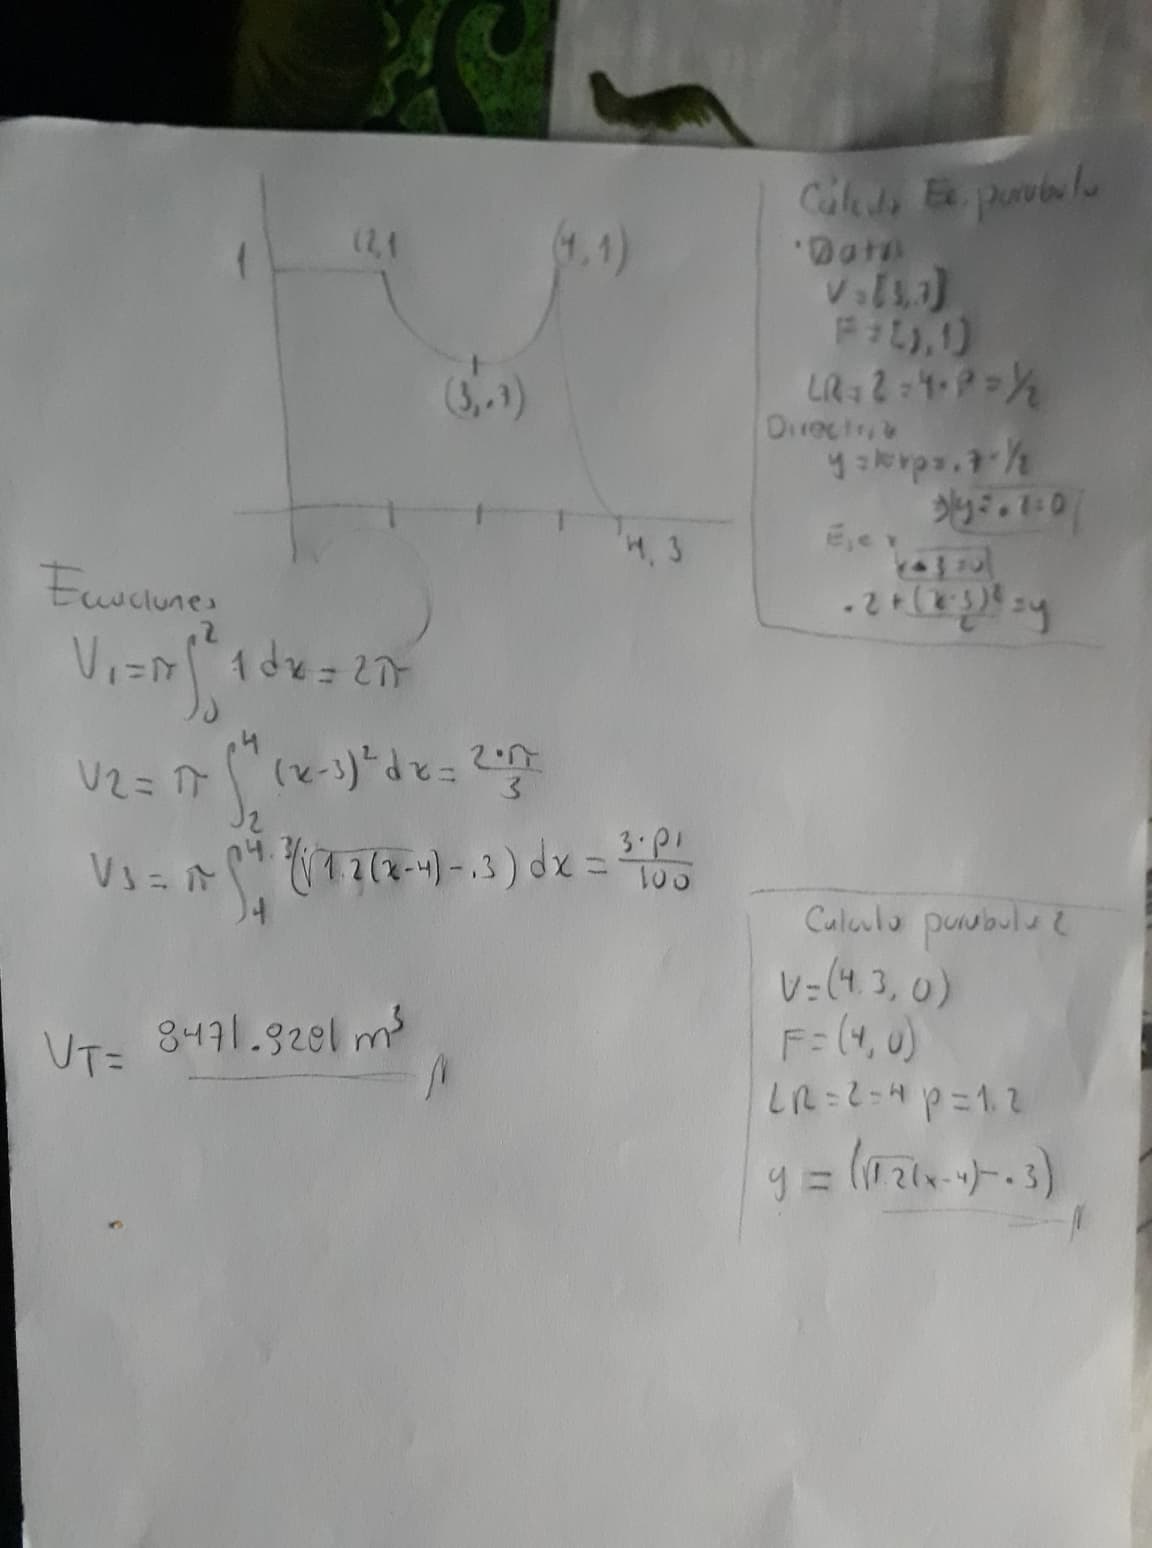 1
(2,1
(4,1)
(3,.7)
4.3
Cálculo Ec. parabola
V=[3,.7]
F=[3,1)
LR=2=4·P=½
Directriz
y=k-p=.7-½
y=.1=0
x-3=0
Ecuaciones
V₁=π∫₀² 1dx=2π
V2=π∫₂⁴(x-3)²dx=2·π/3
V3=π∫₄^4.3(√1.2(x-4)-.3)dx=3·pi/100
VT= 8471.9201 m³
Calculo parabola 2
V=(4.3,0)
F=(4,0)
LR=2=4p=1.2
y=(√1.2(x-4)-.3)